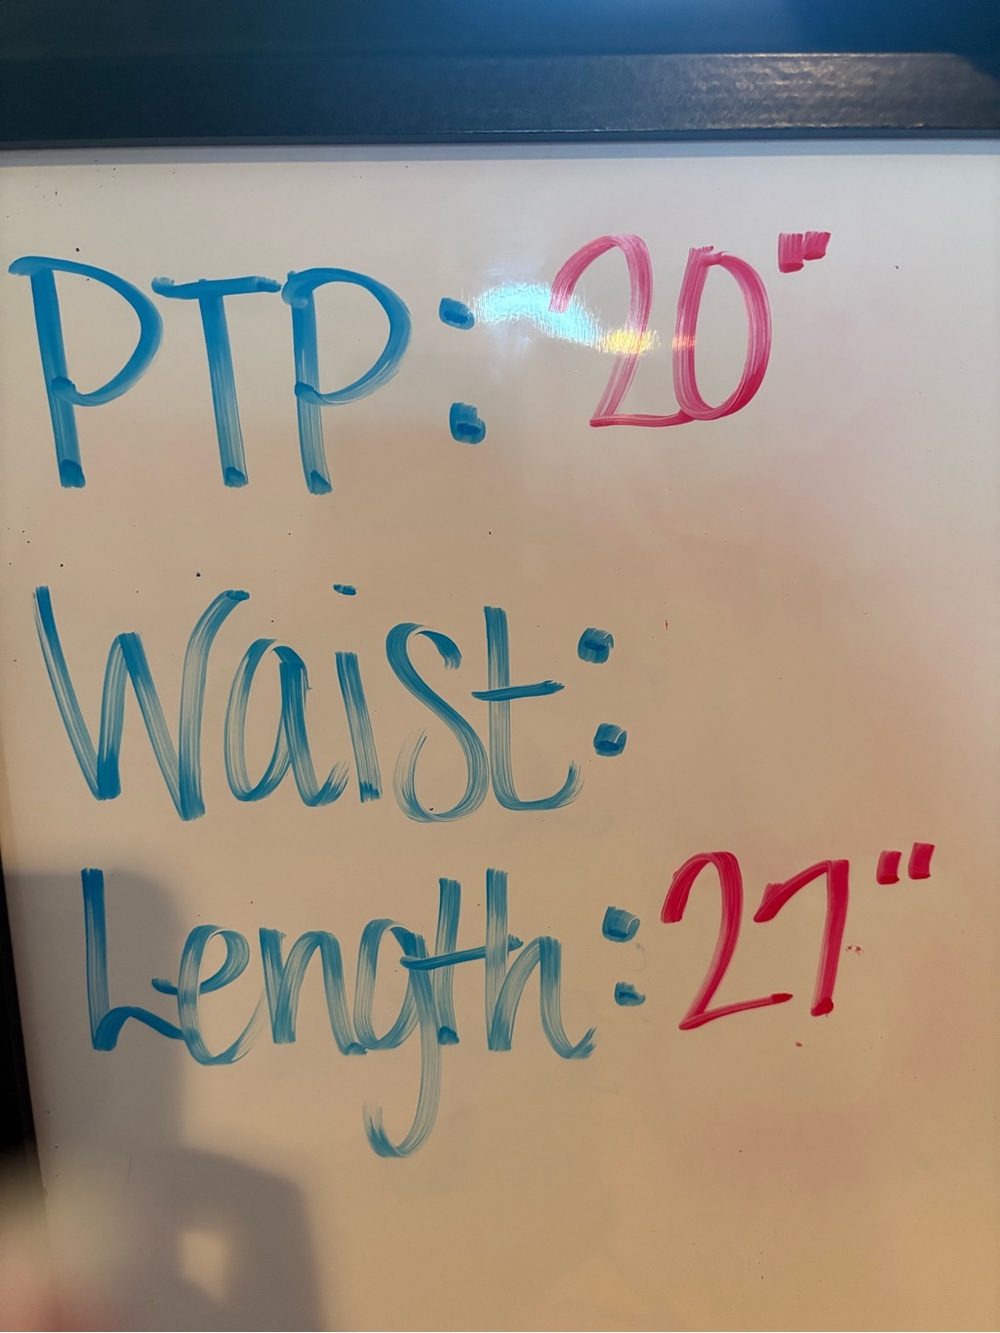 PTP: 20"
Waist:
Length: 27"